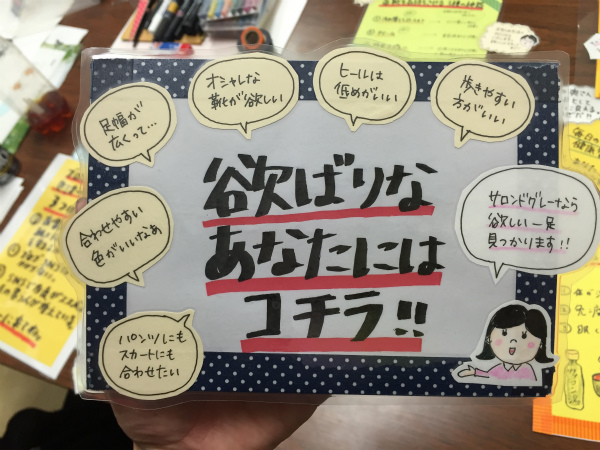 足幅が
広くって…
オシャレな
靴が欲しい
ヒールは
低めがいい
歩きやすい
方がいい
合わせやすい
色がいいなぁ
パンツにも
スカートにも
合わせたい
欲ばりな
あなたには
コチラ!!
サロンドグレーなら
欲しい一足
見つかります!!